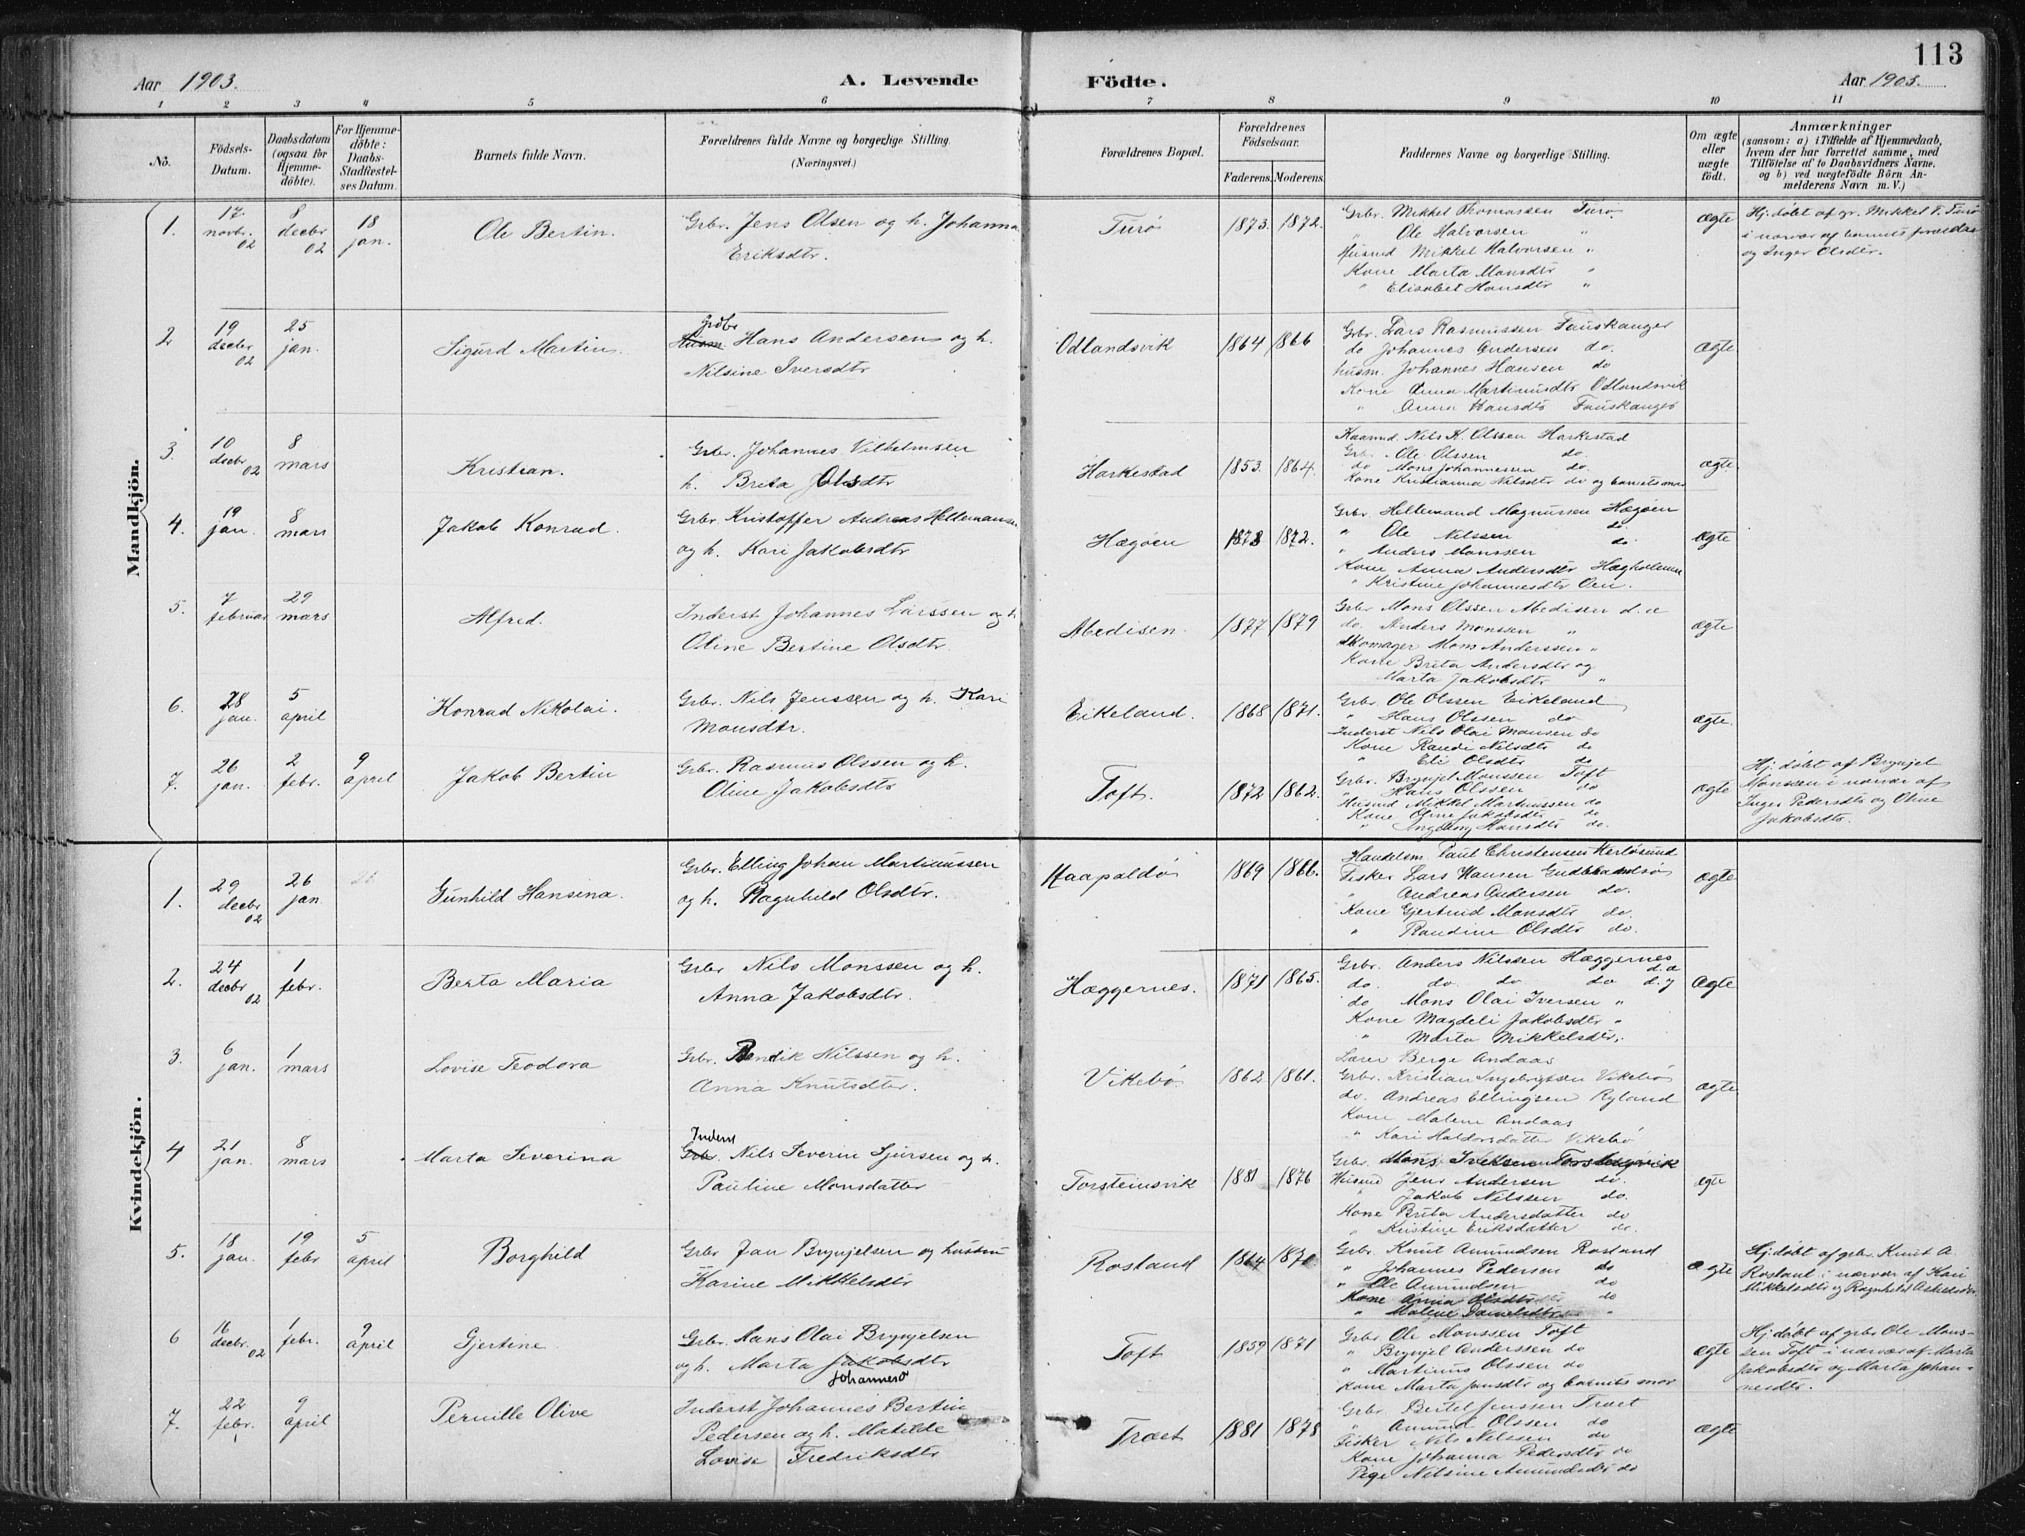 113
Aar 1903.
A. Levende
Födte.
Aar 1903.
1 2 3 4 5 6 7 8 9 10 11
No.
Födsels-Datum.
Daabsdatum (ogsaa for Hjemme-döbte).
For Hjemme-döbte: Daabs-Stadfæstel-ses Datum.
Barnets fulde Navn.
Forældrenes fulde Navne og borgerlige Stilling (Næringsvei.)
Forældrenes Bopæl.
Forældrenes Födselsaar.
Faderens. Moderens.
Faddernes Navne og borgerlige Stilling.
Om ægte eller uægte födt.
Anmærkninger
(saasom: a) i Tilfælde af Hjemmedaab,
hvem der har forrettet samme, med
Tilföielse af to Daabsvidners Navne.
og b) ved uægtefödte Börn An-
melderens Navn m. V.)
Mandkjön.
1. 17 novbr. 02 8 decbr 02 18 jan. Ole Bertin. Grbr. Jens Olsen og h. Johanna
Eriksdtr.
Turø 1873. 1872.
Grbr. Mikkel Thomassen Turø
" Ole Halvorsen "
Husmd Mikkel Halvorsen "
Kone Marta Monsdtr "
" Elisabet Hansdtr "
ægte
Hj. døbt af gr. Mikkel T. Turø
i nærvær af barnets forældre
og Inger Olsdtr.
2 19 decbr 02 25 jan. Sigurd Martin.
Grdbr
Husm. Hans Andersen og h.
Nilsine Iversdtr
Odlandsvik 1864 1866
Grbr. Lars Rasmussen Fauskanger
do Johannes Andersen do.
husm. Johannes Hansen do
Kone Anna Martinusdtr Odlandsvik
" Anna Hansdtr Fauskanger
ægte
3. 10 decbr 02 8 mars Kristian.
Grbr. Johannes Vilhelmsen
h. Brita Olsdtr
Harkestad 1853. 1864.
Kaarmd. Nils K. Olssen Harkestad
Grbr. Ole Olssen do.
do Mons Johannesen do.
Kone Kristianna Nilsdtr do og barnets mor
ægte
4. 19 jan. 8 mars Jakob Konrad.
Grbr Kristoffer Andreas Heltemansen
og h. Kari Jakobsdtr
Hægøen 1873 1872.
Grbr. Heltemand Magnussen Hægøen
" Ole Nilssen do.
" Anders Monssen
Kone Anna Andersdtr Hægholmen
" Kristine Johannesdtr Øen.
ægte
5. 7 februar 29 mars Alfred.
Inderst Johannes Larssen og h
Oline Bertine Olsdtr.
Abedisen. 1877 1879
Grbr Mons Olssen Abedisen d.æ
do. Anders Monssen "
Skomager Mons Anderssen "
Kone Brita Andersdtr og
Marta Jakobsdtr "
ægte
6. 28 jan. 5 april Konrad Nikolai.
Grbr. Nils Jenssen og h. Kari
Monsdtr.
Eikeland. 1868 1871.
Grbr. Ole Olssen Eikeland
" Hans Olssen do
Inderst Nils Olai Mansen do
Kone Randi Nilsdtr do
" Eli Olsdtr do
ægte.
7. 26 jan. 2 febr. 9 april Jakob Bertin
Grbr. Rasmus Olssen og h.
Oline Jakobsdtr
Toft. 1872 1862.
Grbr. Brynjel Monssen Toft
" Hans Olssen do
Husmd Mikkel Martinussen do
Kone Oline Jakobsdtr do
" Ingborg Hansdtr do.
ægte
Hj. døbt af Brynjel
Monssen i nærvær af
Inger Pedersdtr og Oline
Jakobsdtr.
Kvindekjön.
1. 29 decbr 02 26 jan. Gunhild Hansina.
Grbr. Elling Johan Martinussen
og h. Ragnhild Olsdtr.
Kaapaldø 1869 1866.
Handelsm. Paul Christensen Herløsund
Fisker Lars Hansen Gudbrandsø
" Andreas Andersen do.
Kone Gjertrud Mansdtr do.
" Randine Olsdtr do.
ægte
2. 24 decbr 02 1 febr. Berta Maria
Grbr Nils Monssen og h.
Anna Jakobsdtr.
Hæggernes. 1871 1865.
Grbr. Anders Nilssen Hæggernes d.æ
do. do. do do d.y
do Mons Olai Iversen "
Kone Magdeli Jakobsdtr "
" Marta Mikkelsdtr.
ægte
3. 6 jan. 1 mars Lovise Teodora
Grbr. Bendik Nilssen og h.
Anna Knutsdtr.
Vikebø 1862 1861.
Lærer Berge Andaas
Grbr. Kristian Ingebrigtsen Vikebø
do. Andreas Ellingsen Ryland
Kone Malene Andaas
" Kari Haldorsdatter Vikebø
ægte.
4 21 jan. 8 mars Marta Severina
Inderst
Grbr. Nils Severin Sjursen og h.
Pauline Monsdatter
Torsteinsvik 1881 1876
Grbr. Mons Iversen Torsteinsvik
Husmd Jens Andersen do.
" Jakob Nilssen do.
Kone Brita Andersdatter do
" Kristine Eriksdatter do.
ægte
5. 18 jan. 19 febr 5 april Borghild
Grbr Jan Brynjelsen og hustru
Karine Mikkelsdtr
Rosland 1864 1870.
Grbr. Knut Amundsen Rosland
" Johannes Pedersen do
" Ole Amundsen do
Kone Anna Olsdtr do
" Malene Danielsdtr "
ægte
Hj. døbt af grbr. Knut A.
Rosland i nærvær af Kari
Mikkelsdtr og Ragnhild Askildsdtr
6 16 decbr. 02 1 febr. 9 april Gjertine.
Grbr. Hans Olai Brynjelsen
og h. Marta Jakobsdtr
Johannesd
Toft 1859 1871
Grbr Ole Monssen Toft
" Brynjel Anderssen do
" Martinus Olssen do
Kone Marta Jansdtr og barnets mor
ægte
Hj. døbt af grbr Ole Mons-
sen Toft i nærvær af Marta
Jakobsdtr og Marta Johan-
nesdtr.
7. 22 febr. 9 april Pernille Olive
Inderst Johannes Bertin
Pedersen og h. Matilde
Lovise Fredriksdtr
Træet 1881 1878
Grbr Bertel Jenssen Træet
Amund Olssen do
Fisker Nils Nilssen do
Kone Johanna Pedersdtr do
Pige Nilsine Amundsdtr do
ægte